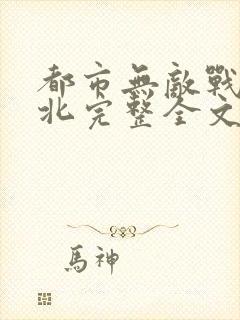 都市無敵戰
北完整全文
馬神